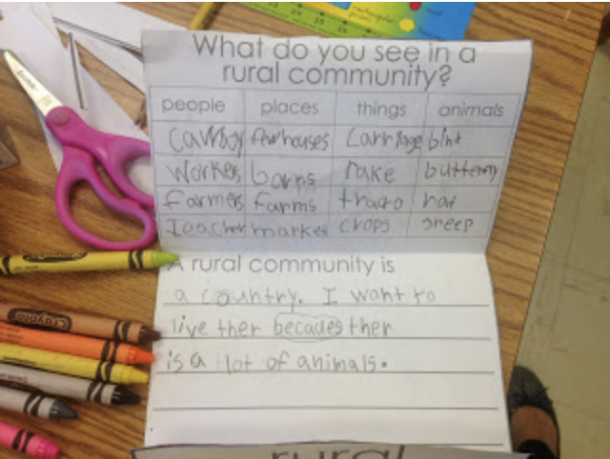 What do you see in a
rural community?
people places things animals
Cawboy few houses Carriage
Workers barns rake butterfly
Farmers farms tracto rat
Teacher market crops sheep
A rural community is
a country. I want to
live ther becaues ther
is a lot of animals.
rural